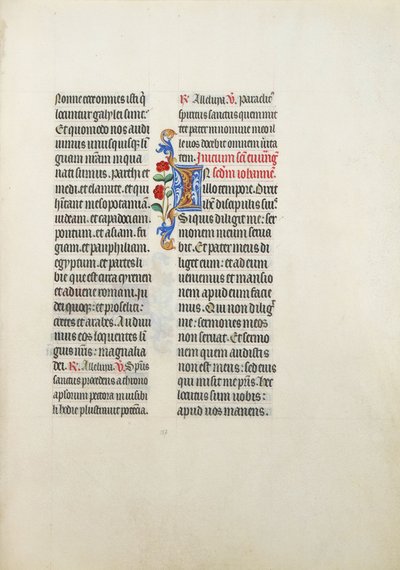 Nonne ecce omnes isti qͥ
locuntur galylei sunt.
Et quomodo nos audi
uimus unusquisqꝫ lin
guam nr̄am in qua
nati sumus. parthi et
medi. et elamite. et qui
habitant mesopotamiā.
iudeam. et capadociam.
pontum. et asiam. fri
giam. et pamphiliam.
egyptum. et partes li
bie que est circa cyrenen
et aduene romani. Iu
dei quoqꝫ. et proseliti:
cretes et arabes. Audiui
mus eos loquentes lī
guis nr̄is: magnalia
dei. ℟. Alleluya. ℣. Spūs
sanctus procedens a throno
apl'orum pectora inuisibi
li hodie penetrauit potencia.
℟. Alleluya. ℣. Paraclitꝰ
spiritus sanctus quem mit
tet pater in nomine meo il
le uos docebit omnem uerita
tem. Inicium sc̄i euangͥ
scd̄m iohannē.
IN
illo tempore. Dixit
ihc̄ discipulis suis.
Siquis diligit me: ser
monem meum serua
bit. Et pater meus di
liget eum: et ad eum
ueniemus et mansio
nem apud eum facie
mus. Qui non diligit
me: sermones meos
non seruat. Et sermo
nem quem audistis
non est meus: sed eius
qui misit me pr̄is. Hec
locutus sum uobis:
apud uos manens.